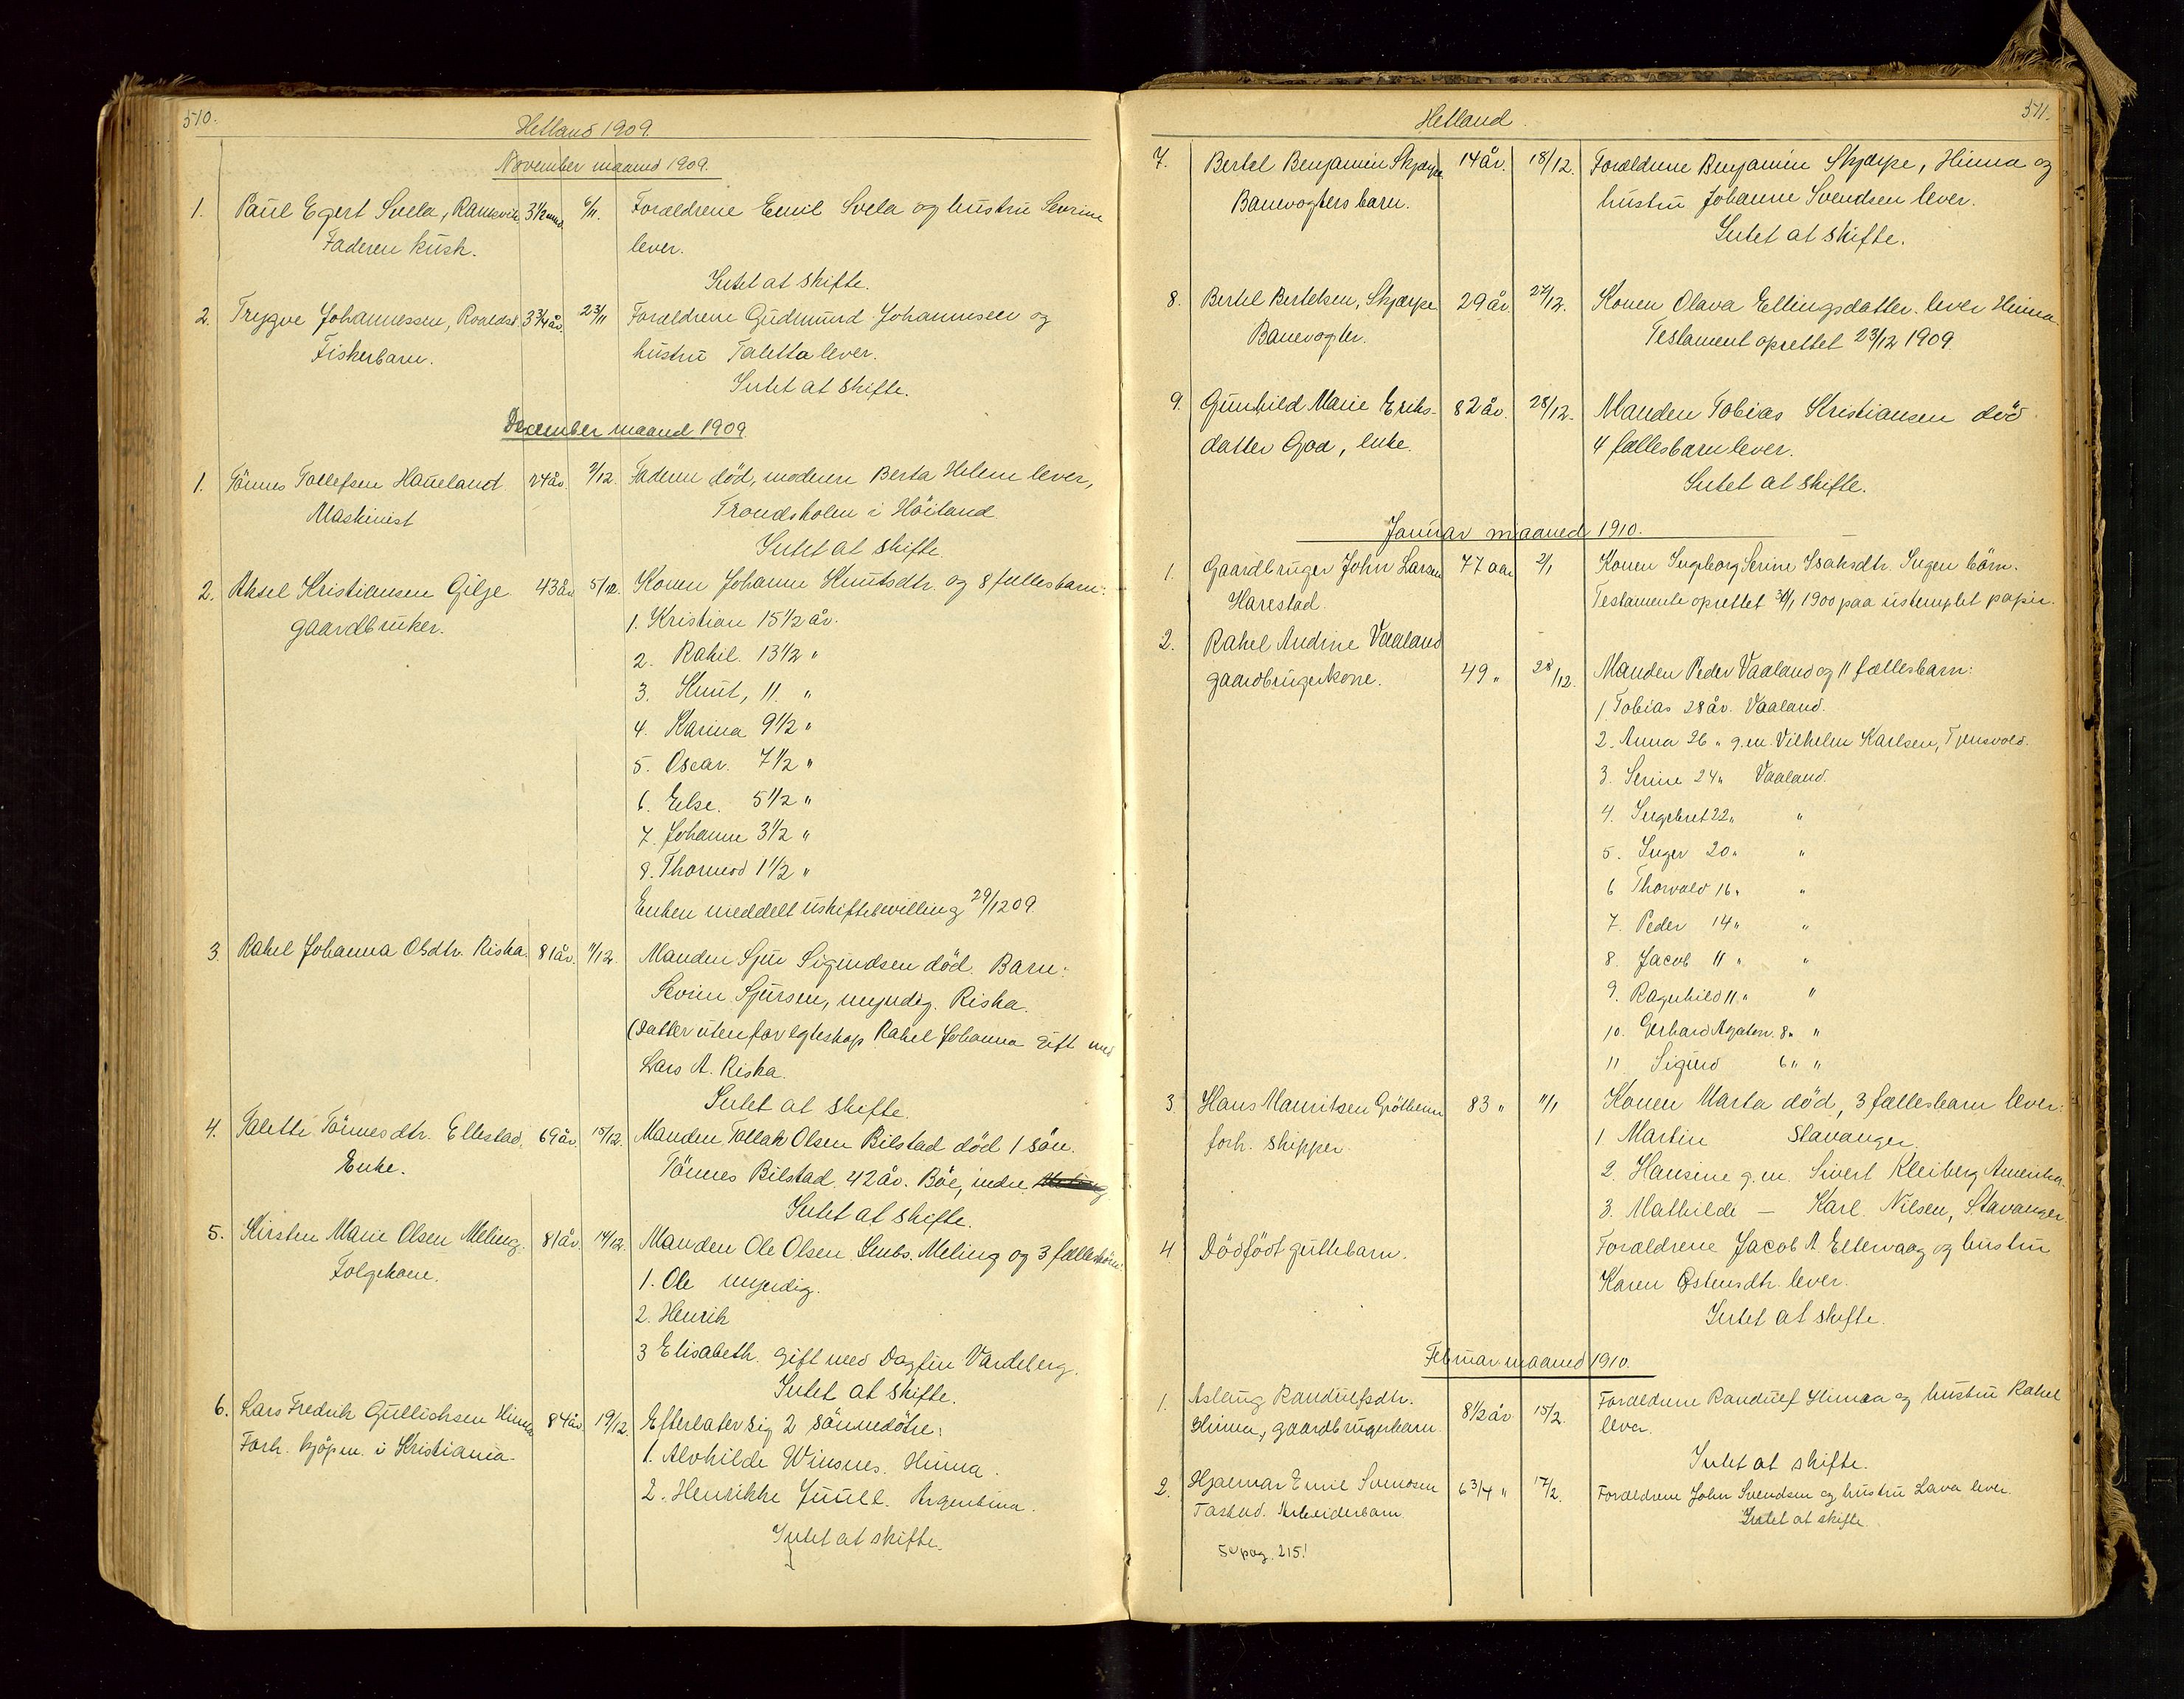 510.
Hetland 1909.
November maaned 1909.
1. Paul Egert Svela, Ramsvik 3 1/2 mnd. 6/11. Forældrene Emil Svela og hustru Sevrine
Faderen kusk. lever.
Intet at skifte.
2. Trygve Johannessen, Roaldsø 3 3/4 år. 23/11 Forældrene Gudmund Johannesen og
Fiskerbarn. hustru Taletta lever.
Intet at skifte.
December maaned 1909.
1. Tönnes Tollefsen Haueland 24 år. 2/12. Faderen död, moderen Berta Helene lever,
Maskinist Trondsholen i Höiland.
Intet at skifte.
2. Aksel Kristiansen Gilje. 43 år 5/12. Konen Johanne Knutsdtr. og 8 fællesbarn:
gaardbruker. 1. Kristian 15 1/2 år.
2. Rakel. 13 1/2 "
3. Knut, 11. "
4. Karina 9 1/2 "
5. Oscar. 7 1/2 "
6. Else. 5 1/2 "
7. Johanne 3 1/2 "
8. Thormod 1 1/2 "
Enken meddelt uskiftebevilling 29/12 09.
3. Rakel Johanna Olsdtr. Riska. 81 år. 11/12. Manden Sjur Sigurdsen död. Barn:
Sevrin Sjursen, myndig. Riska.
(Datter utenfor egteskap Rakel Johanna gift med
Lars A. Riska.
Intet at skifte.
4. Talette Tönnesdtr. Ellestad, 69 år. 15/12. Manden Tollak Olsen Bilstad död 1 sön.
Enke. Tönnes Bilstad. 42 år. Böe, indre
Intet at skifte.
5. Kirsten Marie Olsen Meling. 81 år. 14/12. Manden Ole Olsen Meling og 3 fællesbörn:
Folgekone. 1. Ole myndig.
2. Henrik
3 Elisabeth. gift med Dagfin Vardeberg.
Intet at skifte.
6. Lars Fredrik Gullichsen Hinna 84 år 19/12. Efterlater sig 2 sönnedötre:
Forh. kjöpm. i Kristiania. 1. Alvhilde Winsnes. Hinna.
2. Henrikke Juull. Argentina.
Intet at skifte.
Hetland.
511.
7. Bertel Benjamin Skjærpe 14 år. 18/12. Forældrene Benjamin Skjærpe, Hinna og
Banevogters barn. hustru Johanne Svendsen lever.
Intet at skifte.
8. Bertel Bertelsen, Skjærpe 29 år. 27/12. Konen Olava Ellingsdatter lever Hinna.
Banevogter. Testament oprettet 23/12 1909.
9. Gunhild Marie Eriks- 82 år. 28/12. Manden Tobias Kristiansen död
datter Goa, enke. 4 fællesbarn lever.
Intet at skifte.
Januar maaned 1910.
1. Gaardbruger John Larsen 77 aar 2/1 Konen Ingeborg Serine Isaksdtr. Ingen börn.
Harestad. Testamente oprettet 1900 paa ustemplet papir.
2. Rakel Andrine Vaaland
gaardbrugerkone. 49 " 28/12. Manden Peder Vaaland og 11 fællesbarn:
1. Tobias 28 år. Vaaland.
2. Anna 26 " g.m. Vilhelm Karlsen, Tjensvold.
3. Serine 24 " Vaaland.
4. Ingebret 22 " "
5. Inger 20 " "
6 Thorvald 16 " "
7. Peder 14 " "
8. Jacob 11 " "
9. Ragnhild 11. " "
10. Gerhard Agaton. 8 " "
11. Sigurd 6 " "
3 Hans Mauritsen Grötheim 83 " 11/1 Konen Marta död, 3 fællesbarn lever:
forh. skipper. 1 Martin Stavanger.
2. Hansine g.m. Sivert Kleiberg Amerika.
3. Mathilde — Karl Nilsen, Stavanger.
4. Dödfödt guttebarn. Forældrene Jacob A. Eltervaag og hustru
Karen Östensdtr. lever.
Intet at skifte.
Februar maaned 1910.
1. Aslaug Randulfsdtr. Forældrene Randulf Hinna og hustru Rakel
Hinna, gaardbrugerbarn. 8 1/2 år 15/2. lever.
Intet at skifte.
2. Hjalmar Emil Svendsen 6 3/4 " 17/2. Forældrene John Svendsen og hustru Lava lever.
Tasted. Arbeiderbarn. Intet at skifte.
Se pag. 215!